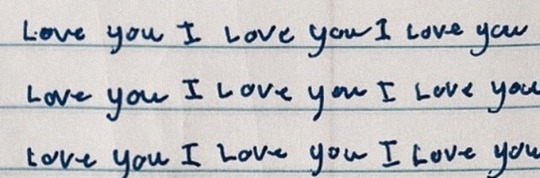 Love you I Love you I Love you
Love you I Love you I Love you
Love you I Love you I Love you